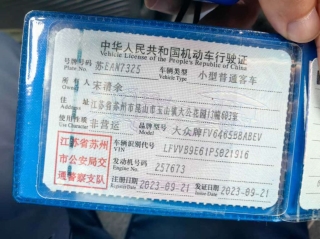 中华人民共和国机动车行驶证
Vehicle License of the People's Republic of China
号牌号码 苏EAN732S 车辆类型 小型普通客车
Plate No. Vehicle Type
所有人 宋清余
Owner
住址 江苏省苏州市昆山市玉山镇大公花园12幢603室
Address
使用性质 非营运 品牌型号 大众牌FV6465BBABEV
Use Character Model
江苏省苏州市公安局交通警察支队
车辆识别代号 LFVVB9E61P5021916
VIN
发动机号码 257673
Engine No.
注册日期 2023-09-21 发证日期 2023-09-21
Register Date Issue Date